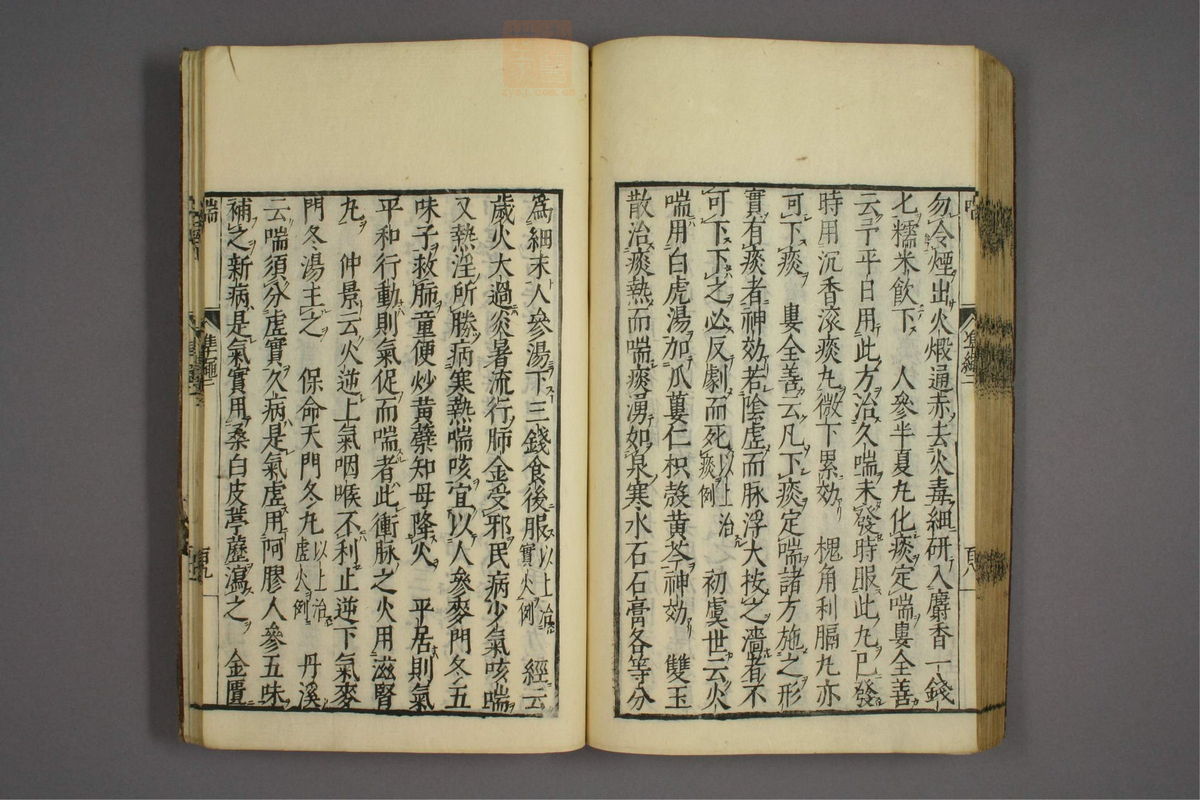 勿令煙出火煅通赤去火毒細研入麝香一錢
七糯米飲下　人參半夏丸化痰定喘婁全善
云予平日用此方治久喘未發時服此丸已發
時用沉香滚痰丸微下累効　槐角利膈丸亦
可下痰　婁全善云凡下痰定喘諸方施之形
實有痰者神効若陰虛而脉浮大按之濇者不
可下下之必反劇而死以上治痰例　初虞世云火
喘用白虎湯加瓜蔞仁枳殻黄芩神効　雙玉
散治痰熱而喘痰湧如泉寒水石石膏各等分
喘　準繩二　百九
爲細末人參湯下三錢食後服以上治實火例　經云
歲火太過炎暑流行肺金受邪民病少氣咳喘
又熱淫所勝病寒熱喘咳宜以人參麥門冬五
味子救肺童便炒黄蘗知母降火　平居則氣
平和行動則氣促而喘者此衝脉之火用滋腎
丸　仲景云火逆上氣咽喉不利止逆下氣麥
門冬湯主之　保命天門冬丸以上治虛火例　丹溪
云喘須分虛實久病是氣虛用阿膠人參五味
補之新病是氣實用桑白皮葶藶瀉之　金匱